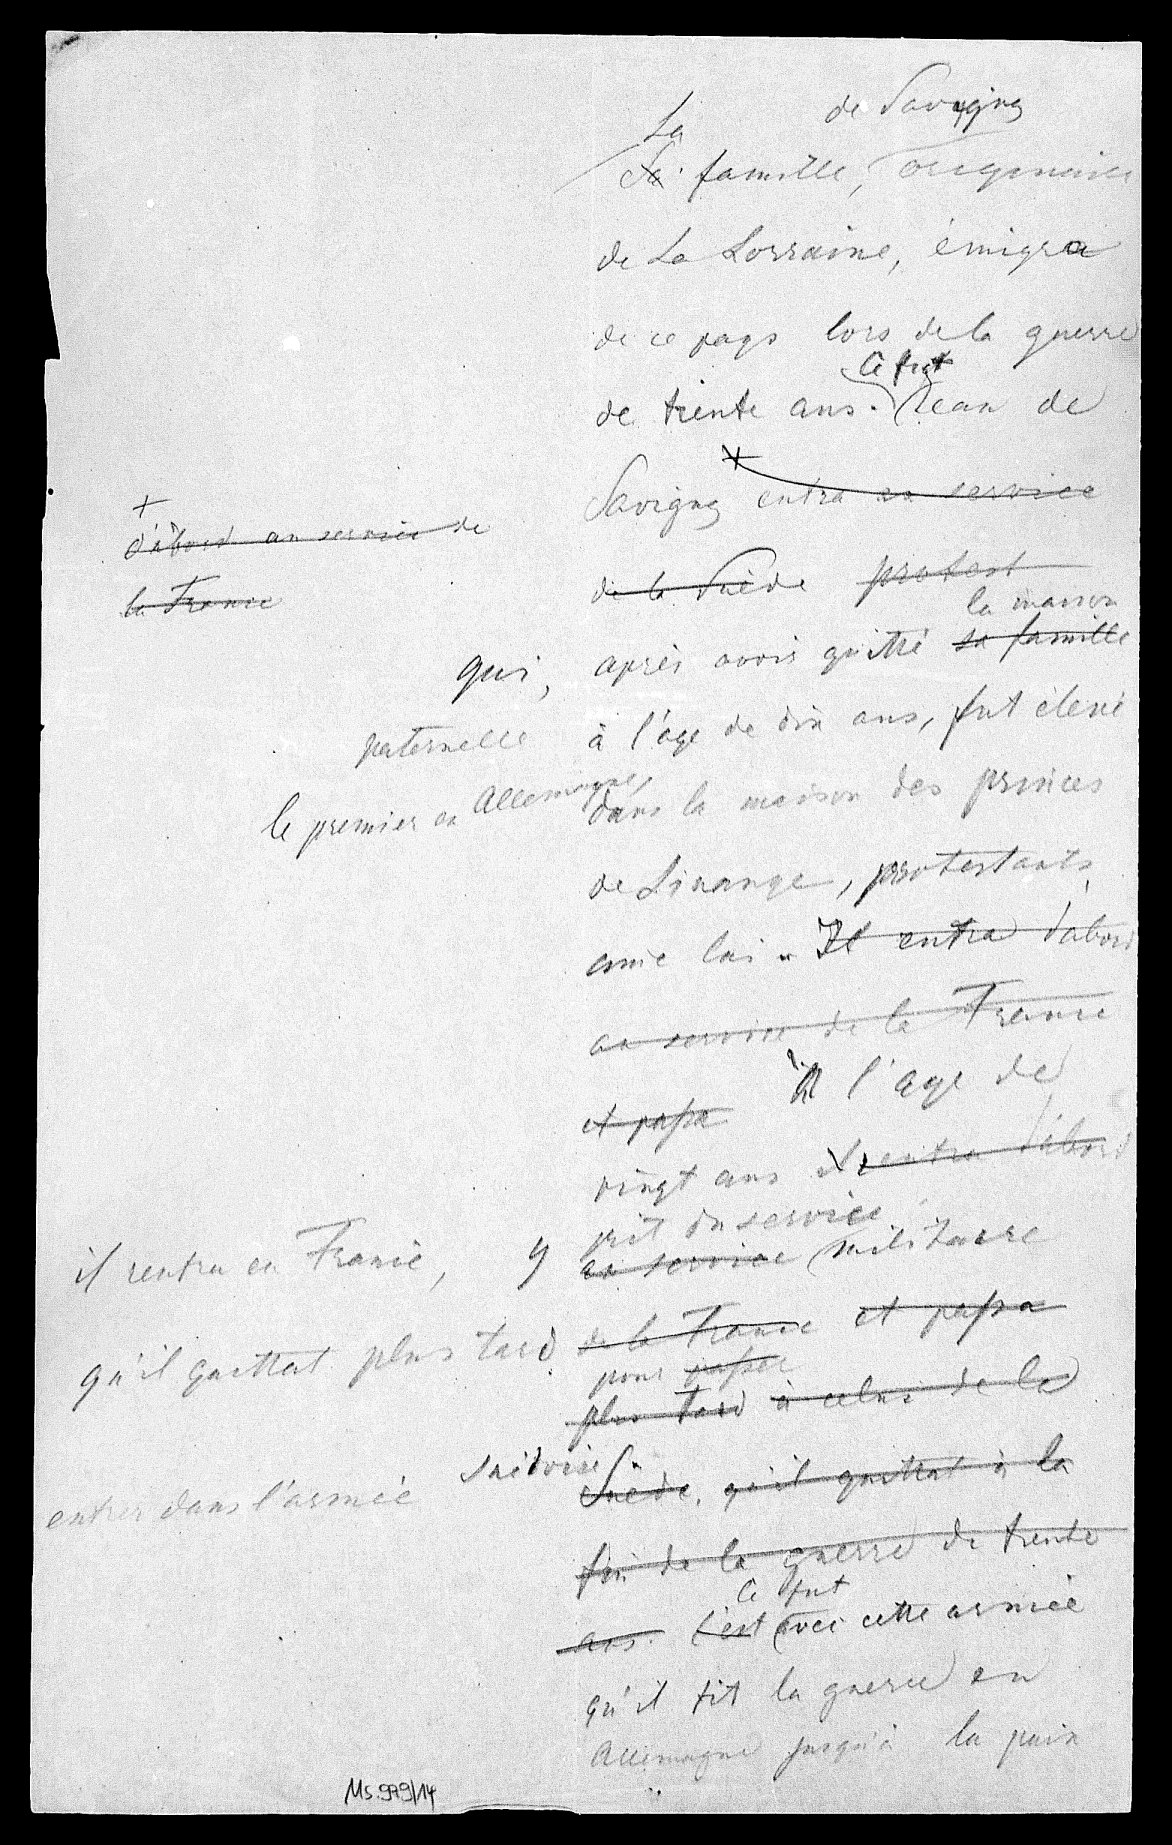 de Savigny
La
Sa famille, originaire
de la Lorraine, émigra
de ce pays lors de la guerre
Ce fut
de trente ans. Jean de
Savigny entra au service
+
d'abord au service de
la France
de la Suède protest
la maison
qui, après avoir quitté sa famille
paternelle à l'age de dix ans, fut élevé
le premier en Allemagne,
dans la maison des princes
de Linange, protestants
comme lui. Il entra d'abord
au service de la France
et passa A l'age de
vingt ans il entra d'abord
prit du service
il rentra en France, y au service militaire
qu'il quittat plus tard de la France et passa
pour passer
plus tard à celui de la
suédoise.
entrer dans l'armée Suède, qu'il quittat à la
fin de la guerre de trente
Ce fut
ans. C'est avec cette armée
qu'il fit la guerre en
Allemagne jusqu'à la paix
Ms. 979/14